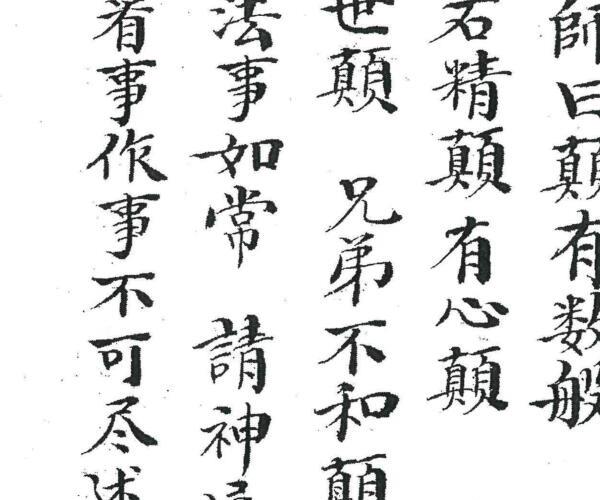 師曰顛有数般
若精顛有心顛
世顛 兄弟不和顛
法事如常 請神
看事作事不可尽述